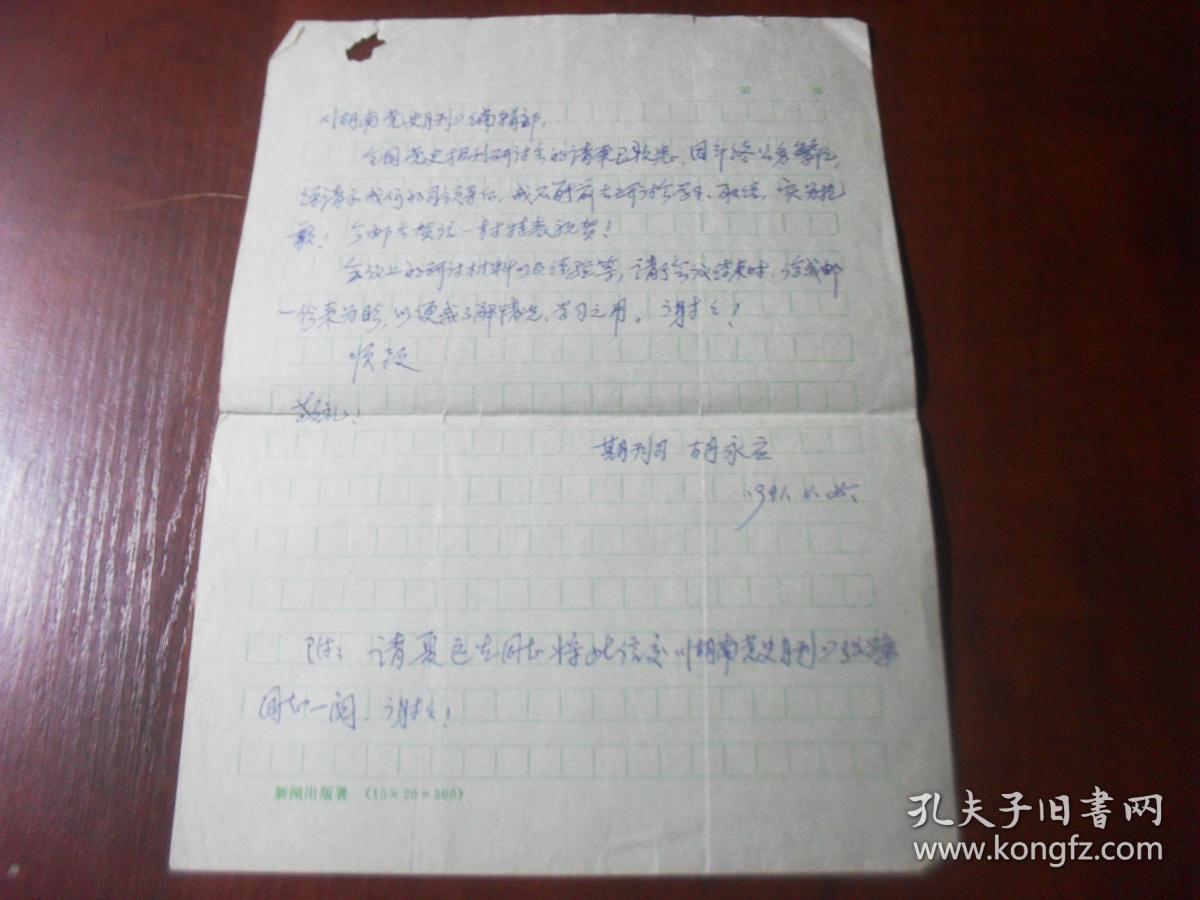 第 页
《湖南党史月刊》编辑部：
全国党史报刊研讨会的请柬已收悉，因年终公务繁忙，
经请示我们的司领导后，我不能前去研讨会学习、取经，实为抱
歉！今邮去贺信一封特表祝贺！
会议上的研讨材料以及经验等，请于会议结束时，给我邮
一份来为盼，以便我了解情况、学习之用。谢谢！
顺致
敬礼！
期刊司 胡永
附：请夏 同志将此信交《湖南党史月刊》
同志一阅，谢谢！
新闻出版署 (15×20=300)
孔夫子旧书网
www.kongfz.com